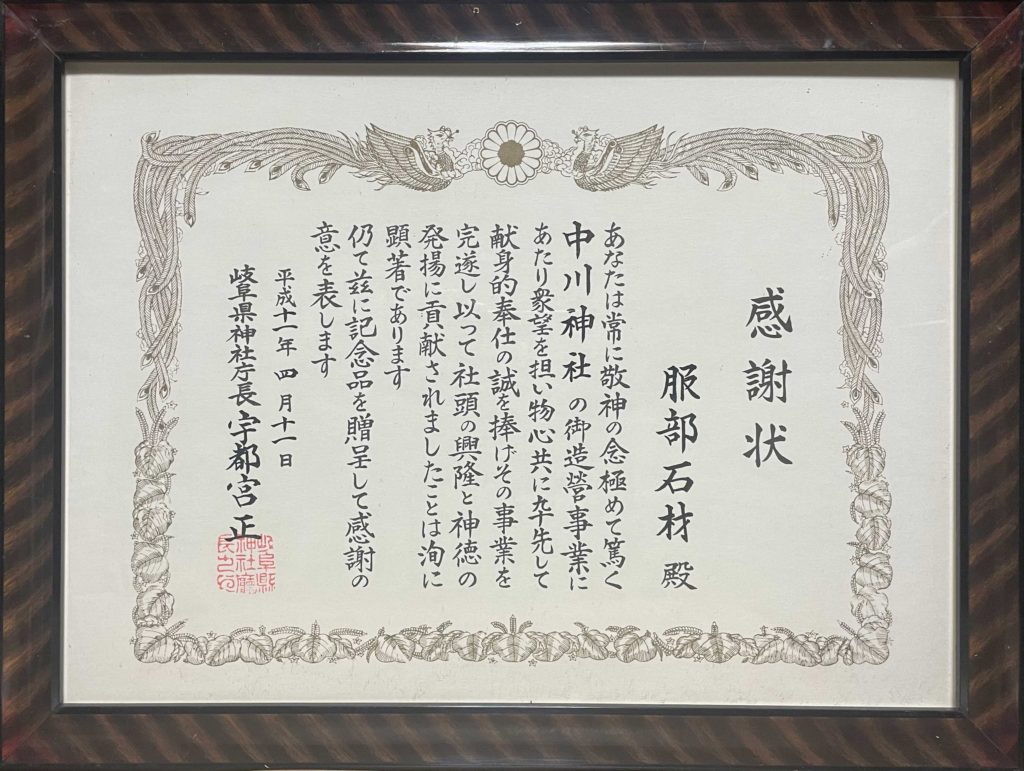 感謝状
服部石材 殿
あなたは常に敬神の念極めて篤く
中川神社の御造營事業に
あたり衆望を担い物心共に卆先して
献身的奉仕の誠を捧げその事業を
完遂し以って社頭の興隆と神徳の
発揚に貢献されましたことは洵に
顕著であります
仍て玆に記念品を贈呈して感謝の
意を表します
平成十一年 四 月十一日
岐阜県神社庁長 宇都宮 正